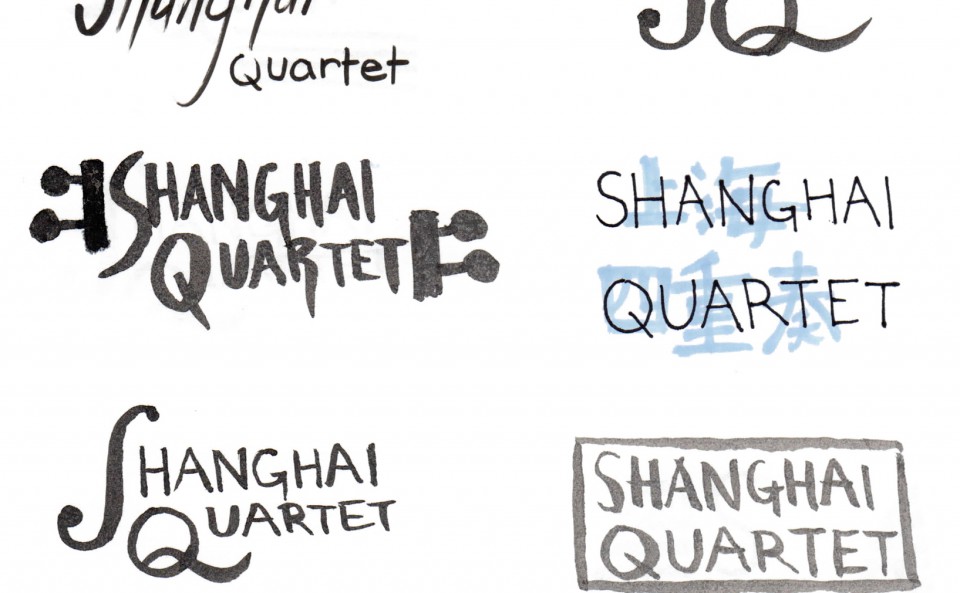 Shanghai
Quartet
SQ
SHANGHAI
QUARTET
上海
四重奏
SHANGHAI
QUARTET
SHANGHAI
QUARTET
SHANGHAI
QUARTET